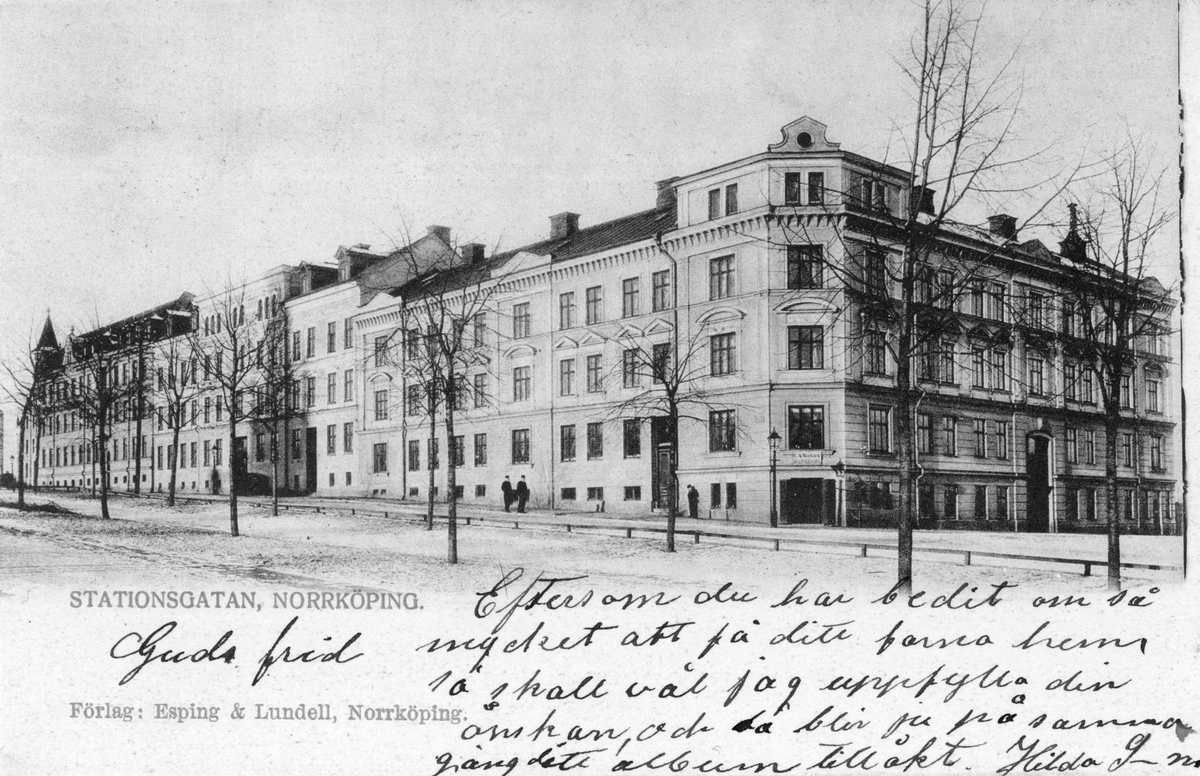 STATIONSGATAN, NORRKÖPING.
Guds frid
Förlag: Esping & Lundell, Norrköping.
Eftersom du har bedit om så
mycket att få ditt forna hem,
så skall väl jag uppfylla din
önskan, och då blir ju på samma
gång ditt album tillökt. Hilda